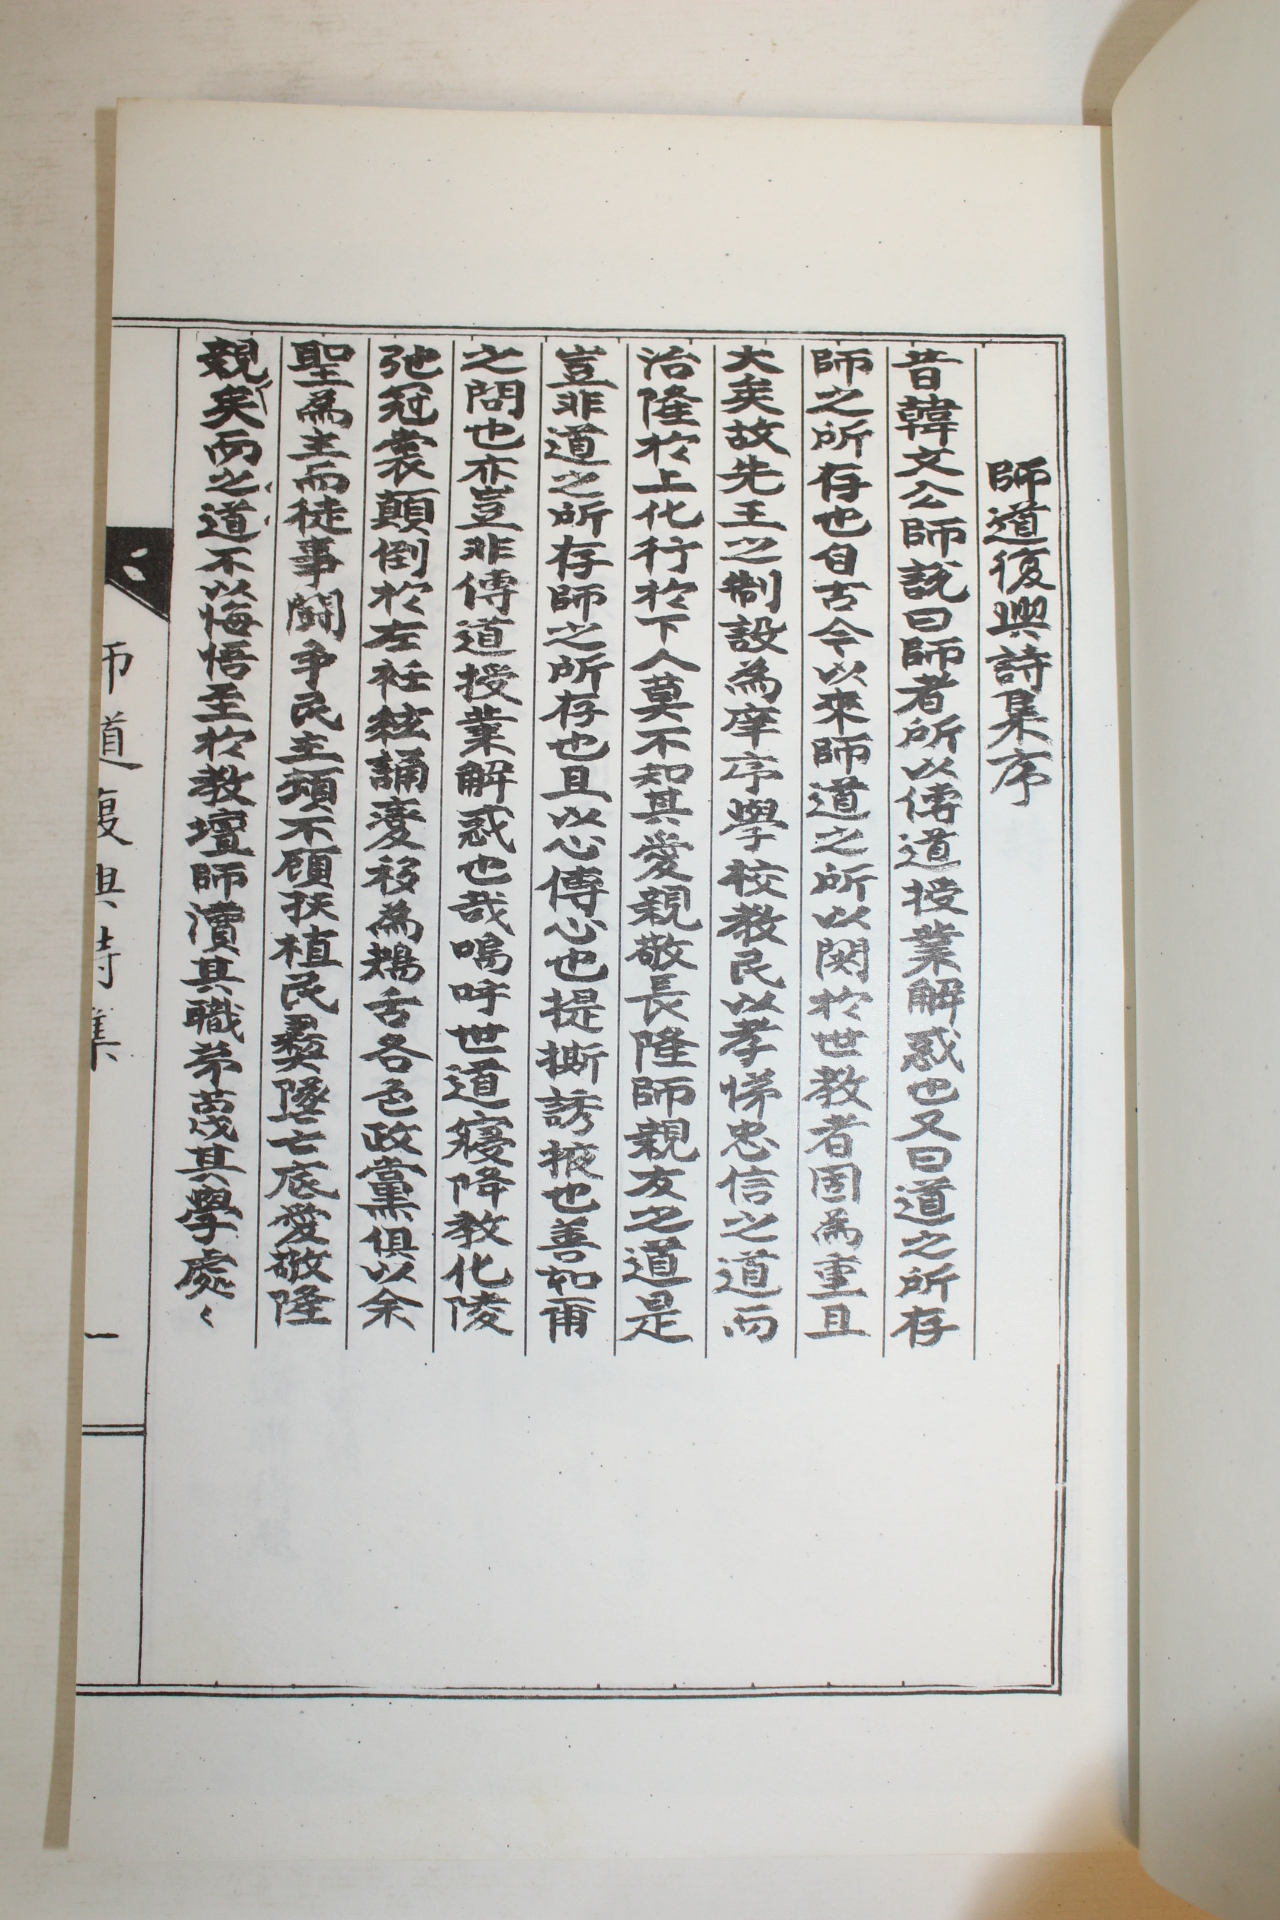 師道復興詩集序
昔韓文公師說曰師者所以傳道授業解惑也又曰道之所存
師之所存也自古今以來師道之所以関於世教者固為重且
大矣故先王之制設為庠序學校教民以孝悌忠信之道而
治隆於上化行於下人莫不知其愛親敬長隆師親友之道是
豈非道之所存師之所存也且以心傳心也提撕誘掖也善如甫
之問也亦豈非傳道授業解惑也哉嗚呼世道寢降教化陵
弛冠裳顛倒於左衽絃誦變移為鴂舌各色政黨俱以余
聖為主而徒事鬪爭民主頻不顧扶植民彜墜亡底愛敬隆
親矣而之道不以悔悟至於教壇師瀆其職弟蔑其學處〻
師道復興詩集
一